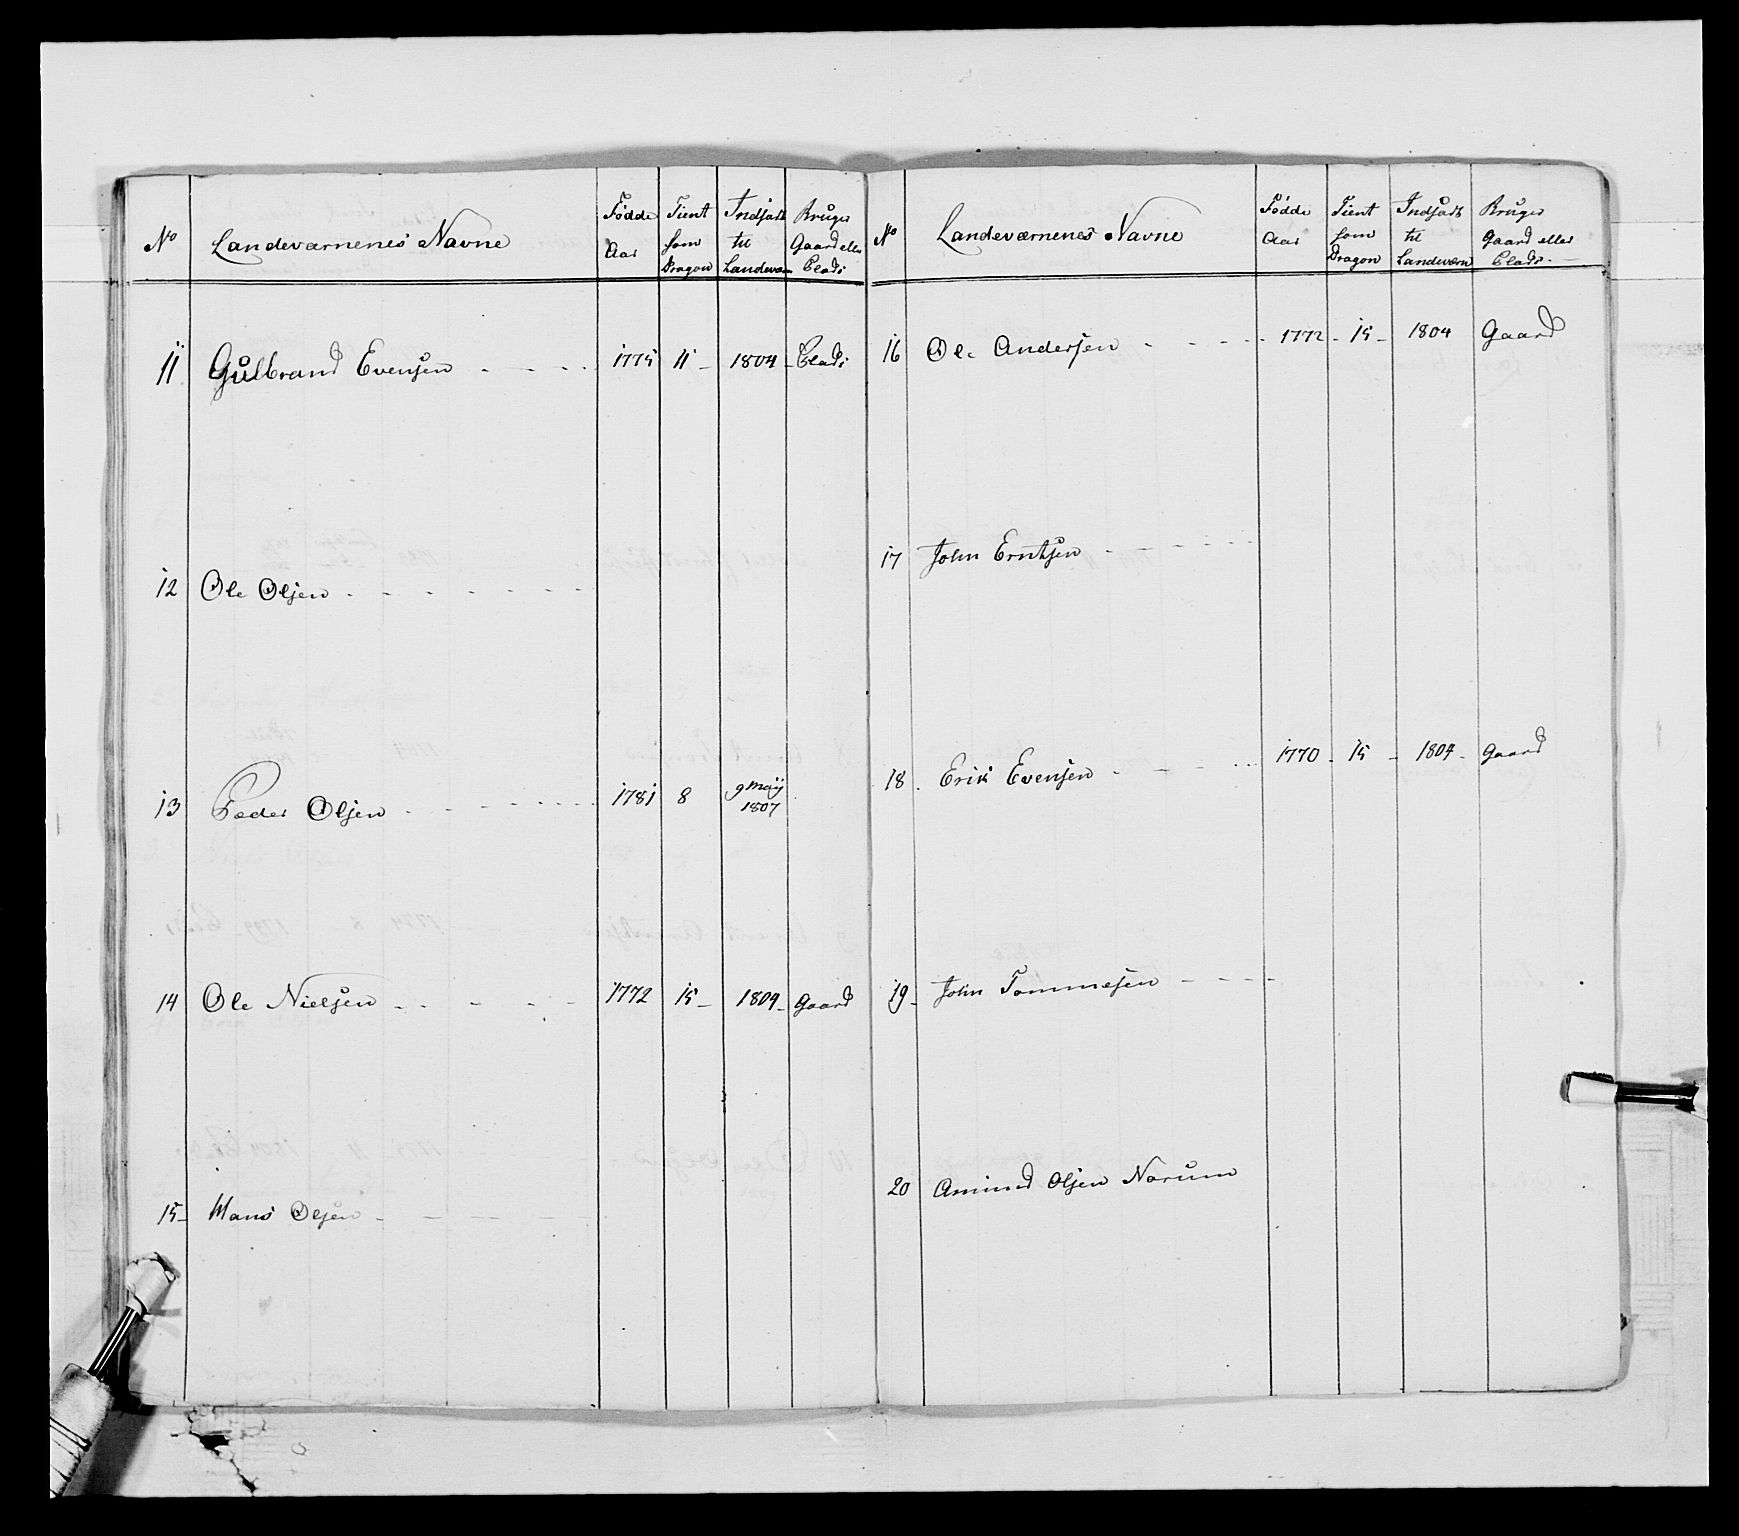 No Landeværnenes Navne Födde Aar Tient som Dragon Indsadt til Landeværn Bruger Gaard eller Plads
11 Gulbrand Evensen - - - - 1775 11 - 1804 - Plads
12 Ole Olsen - - - - - - -
13 Peder Olsen - - - - - - - 1781 8 9 Maÿ 1807
14 Ole Nielsen - - - - - 1772 15 - 1804 - Gaard
15 - Hans Olsen - - - - -
No Landeværnenes Navne Födde Aar Tient som Dragon Indsadt til Landeværn Bruger Gaard eller Plads -
16 Ole Andersen - - - - - 1772 - 15 - 1804 Gaard
17 John Erntsen - - - - - -
18 . Erik Evensen - - - - - 1770 - 15 - 1804 - Gaard
19 - John Tommesen - - - -
20 Amund Olsen Norum